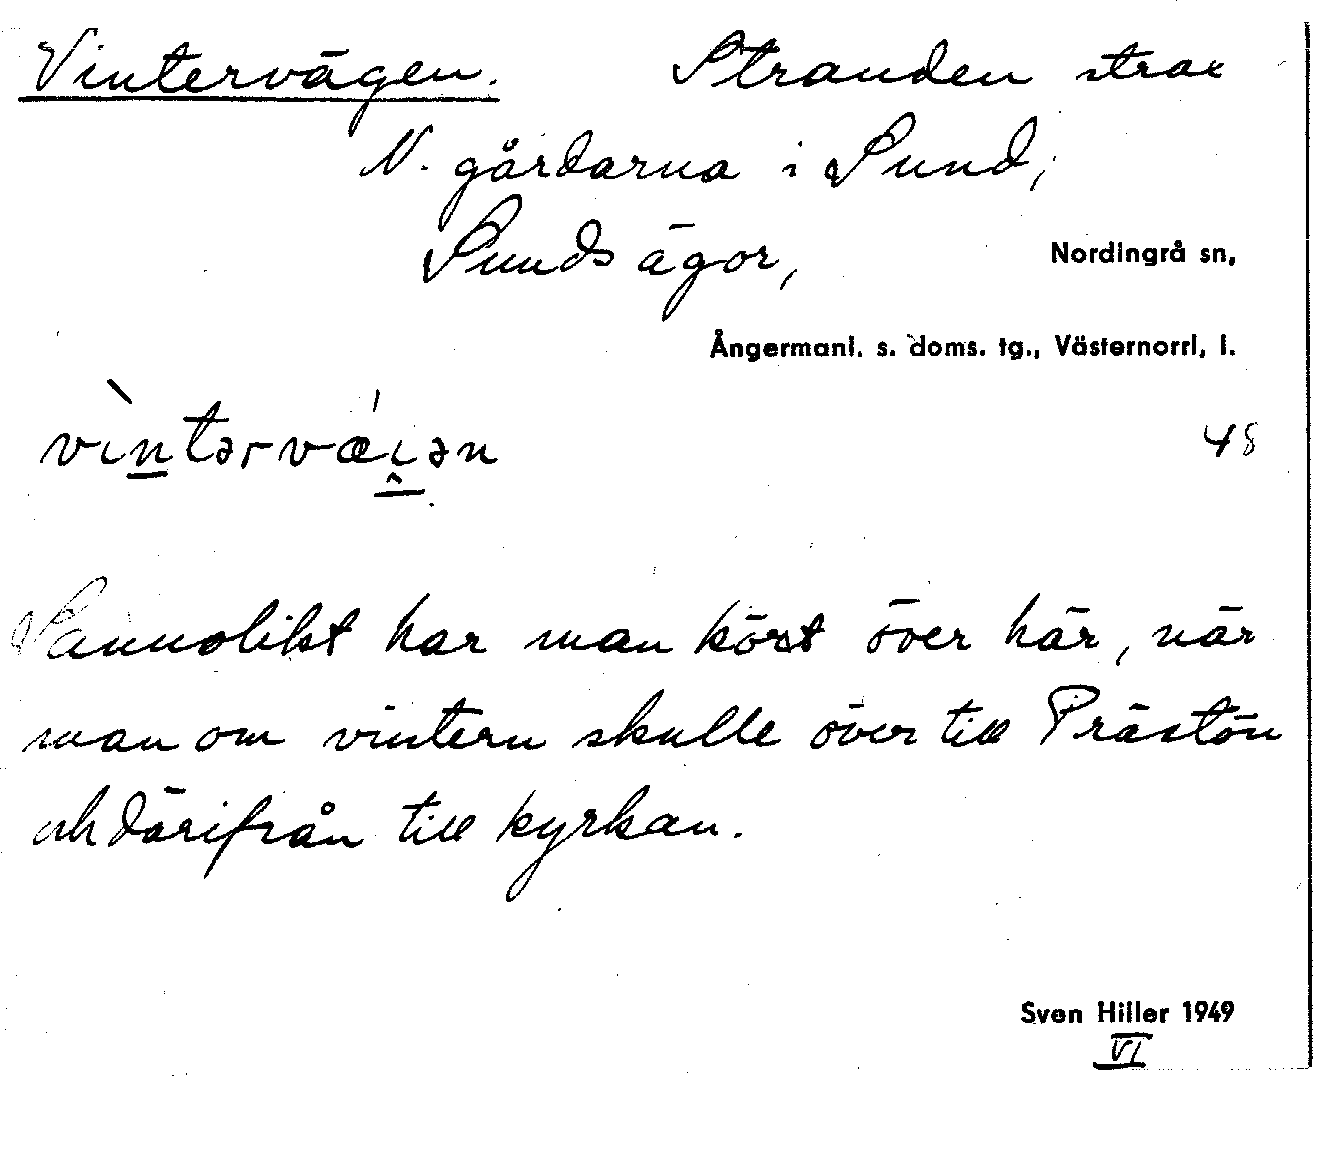 Vintervägen. Stranden strax
N. gårdarna i Sund,
Sunds ägor, Nordingrå sn,
Ångermanl. s. doms. tg., Västernorrl. l.
vìntərvǽi̯ən 48
Sannolikt har man kört över här, när
man om vintern skulle över till Prästön
och därifrån till kyrkan.
Sven Hiller 1949
VI